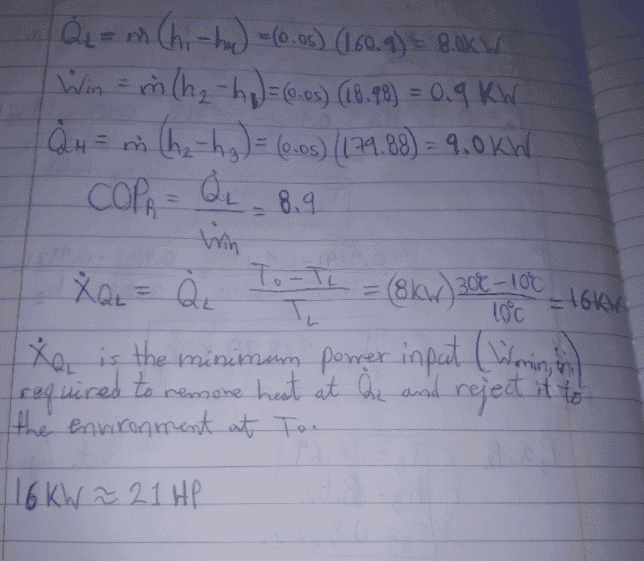 Q̇L = ṁ (h₁ - h₄) = (0.05) (160.9) = 8.0KW
Ẇin = ṁ (h₂ - h₁) = (0.05) (18.98) = 0.9 KW
Q̇H = ṁ (h₂ - h₃) = (0.05) (179.88) = 9.0KW
COPR = Q̇L / Ẇin = 8.9
ẊQL = Q̇L (T₀ - TL) / TL = (8KW) (30℃ - 10℃) / 10℃ = 16KW
ẊQL is the minimum power input (Ẇmin, in)
required to remove heat at Q̇L and reject it to
the environment at T₀.
16 KW ≈ 21 HP